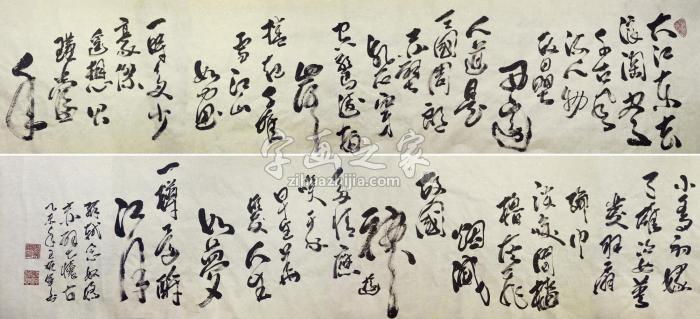 大江东去
浪淘尽
千古风
流人物
故垒
西边
人道是
三国周郎
赤壁
乱石穿
空惊涛拍
岸
捲起千堆
雪江山
如画
一时多少
豪杰
遥想公
瑾当
年
字画之家
zihuazhijia.com
小乔初嫁
了雄姿英
发羽扇
纶巾
谈笑间樯
橹灰飞
烟灭
故国
神游
多情应
笑我
早生华
发人生
如梦
一樽还酹
江月
苏轼念奴娇
赤壁怀古